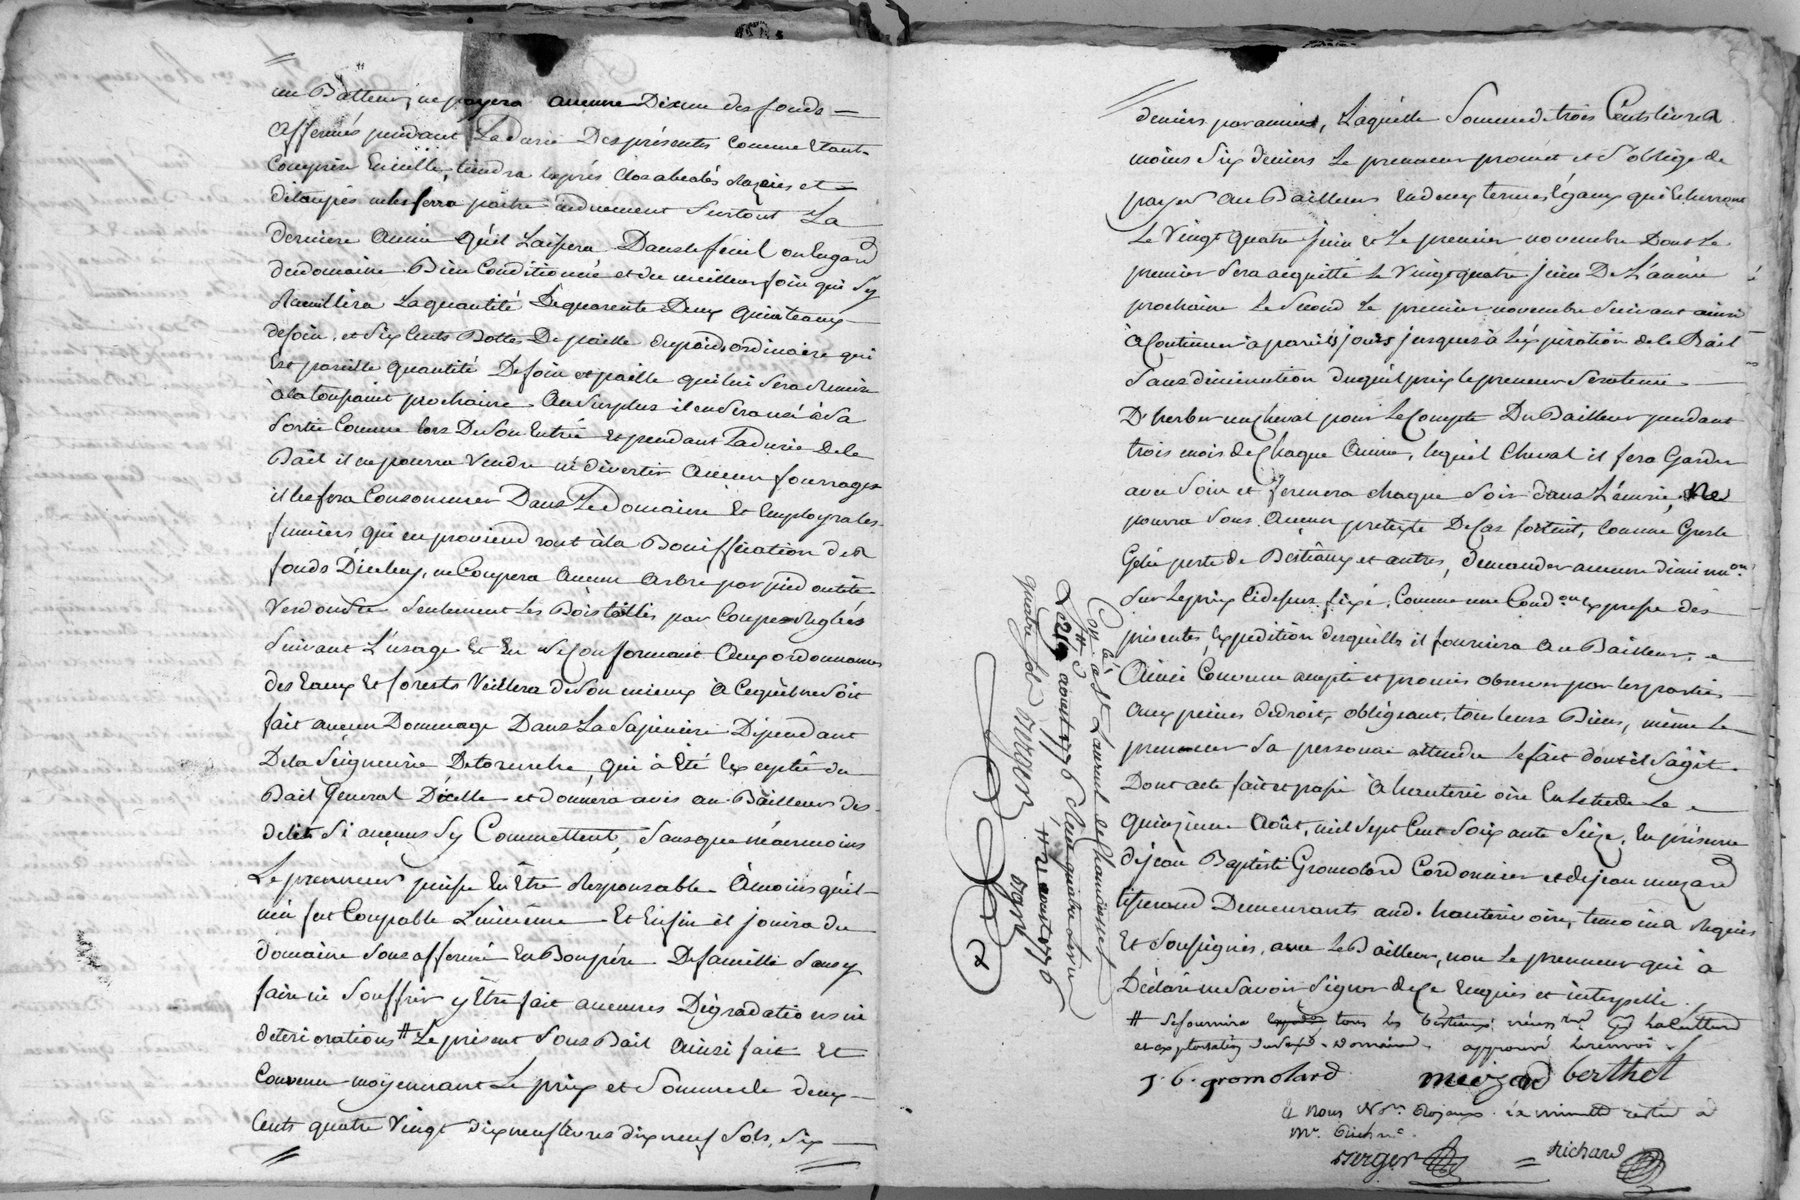 un Batteur, ne payera aucune Dixme des fonds
affermés pendant La Durée Des présentes comme étant
comprise en icelle, tiendra les prés clos abealés Razeies et
détaupés ne les fera paitre induement surtout La
derniere année qu'il Laissera Dans le fénil ou hugard
du domaine Bien Conditionné et du meilleur foin qui sy
Recuillira La quantité De quarente Deux quinteaux
de foin, et Six Cents Bottes De paille du poid ordinaire qui
Est pareille quantité De foin et paille qui lui sera Remise
à la toussaint prochaine Au Surplus il en sera usé à sa
Sortie Comme lors De son Entrée et pendant La durée de le
Bail il ne pourra Vendre ni divertir Aucun fourrages
il les fera Consommer Dans Le Domaine Et Employra les
fumiers qui en proviendront à la Boniffication des
fonds D'icelluy, ne Coupera Aucun arbre par pied ou tête
Verdonsec Seulement Les Bois taillis par coupes Reglées
Suivant L'usage Et En se Conformant Aux ordonnances
des Eaux Et forests Veillera de son mieux à ce qu'il ne soit
fait aucun Dommage Dans La Sapiniere Dépendant
De la Seigneurie De tournelre, qui à Eté Exceptée du
Bail Général D'icelle et donnera avis au Bailleur des
delits Si aucuns Sy Commettent, Sans que néanmoins
Le prenneur puisse En Etre Responsable à moins qu'il
n'en fut Coupable Lui même Et Enfin il jouira du
domaine Sous affermé En Bon pére De famille Sans y
faire ni Souffrir y Etre fait aucunes Dégradations ni
détériorations # Le présent Sous Bail Ainsi fait Et
Convenu moyennant Le prix et Somme de deux
Cents quatre Vingt dix neuf livres dix neuf Sols, Six
deniers par année, Laquelle Somme de trois Cents livres
moins Six deniers Le prenneur promet et S'oblige de
payer au Bailleur En deux termes Egaux qui Echerront
Le Vingt quatre juin et Le premier novembre Dont Le
premier Sera acquitté Le Vingt quatre juin De L'année
prochaine Le Second Le premier novembre Suivant ainsi
à Continuer à pareils jours jusques à L'éxpiration de le Bail
Sans diminution duquel prix le preneur Sera tenu
D'herber un Cheval pour Le Compte Du Bailleur pendant
trois mois de Chaque Année, lequel Cheval il fera Garder
avec Soin et fermera chaque Soir dans L'écurie, Ne
pourra Sous Aucun pretexte De Cas fortuit, Comme Gresle
Gelée perte de Bestiaux et autres, demander aucune diminu.on
Sur Le prix Ci dessus fixé, Comme une Cond.on Expresse des
présentes, Expedition desquelles il fournira Au Bailleur,
Ainsi Convenu accepté et promis observer par les parties
Aux peines de droit, obligeant, tous leurs Biens, même Le
prenneur Sa personne attendu le fait dont il S'agit
Dont acte fait et passé à hauterivoire En Letude Le
quinzieme Août, mil Sept Cent Soixante Seize, En présence
de jean Baptiste Gromolard Cordonnier et de jean muzard
tisserand Demeurants aud. hauterivoire, temoins Requis
Et Soussignés, avec Le Bailleur, non Le prenneur qui à
Déclaré ne Savoir Signer de Ce Enquis et interpellé
# Se fournira tous les bestiaux La Culture
et exploitation dud. Domaine. approuvé Le renvoi
j. b. gromolard muzard berthet
Et Nous No.res Royaux La minutte restée à
Mr. Richard
Berger = Richard
Con.lé à St Laurent de Chamousset
Le 25 aout 1776 Reçu quatre Livres
quatre sols Berger
# 21 aout 1776